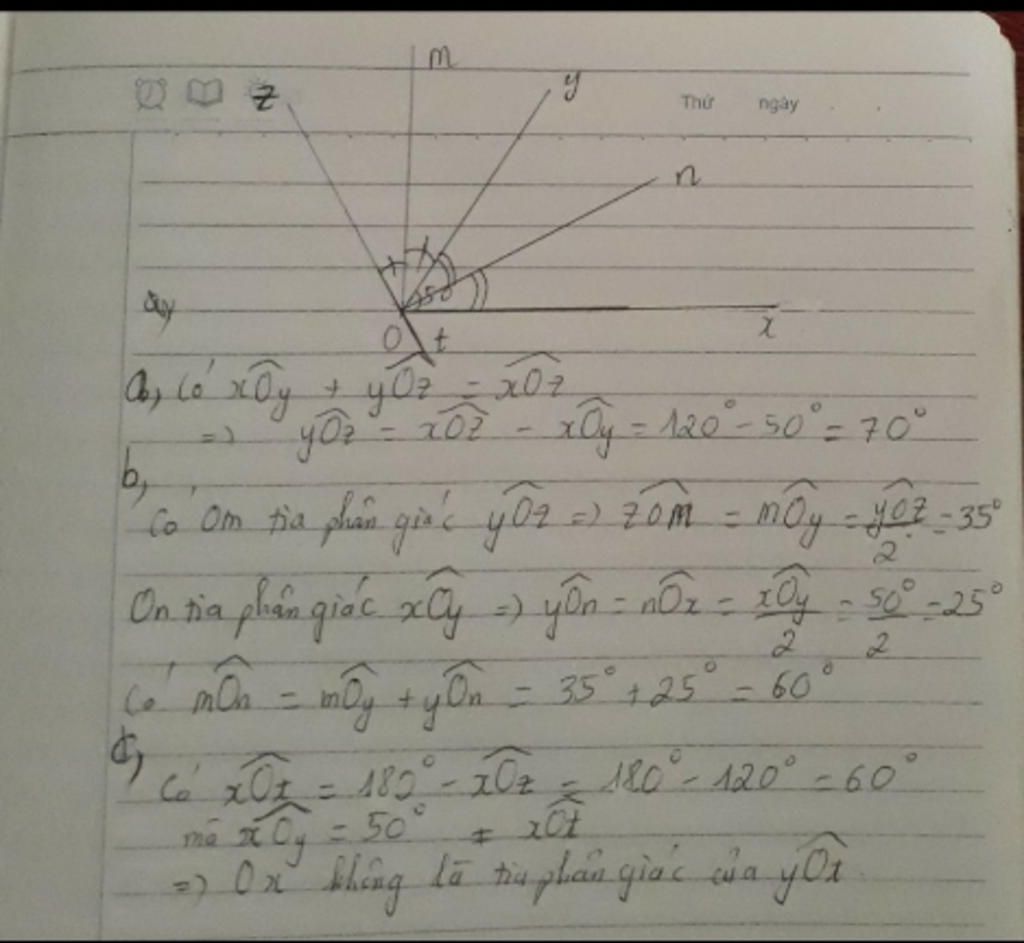 m
z
y
Thứ ngày
n
50
O t
x
a, Có xÔy + yÔz = xÔz
=> yÔz = xÔz - xÔy = 120° - 50° = 70°
b,
Có Om tia phân giác yÔz => zÔm = mÔy = yÔz/2 = 35°
On tia phân giác xÔy => yÔn = nÔx = xÔy/2 = 50°/2 = 25°
Có mÔn = mÔy + yÔn = 35° + 25° = 60°
c,
Có xÔt = 180° - xÔz = 180° - 120° = 60°
mà xÔy = 50° ≠ xÔt
=> Ox không là tia phân giác của yÔt.